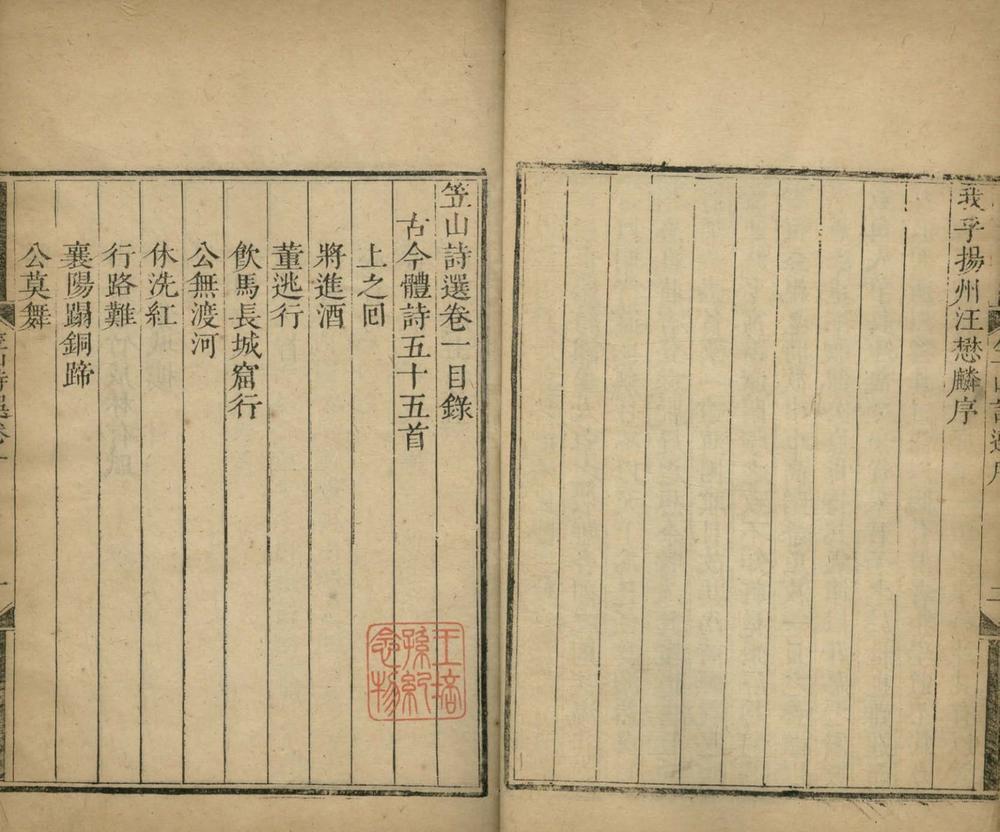 我乎揚州汪懋麟序
笠山詩選卷一目錄
古今體詩五十五首
上之回
將進酒
董逃行
飲馬長城窟行
公無渡河
休洗紅
行路難
襄陽蹋銅蹄
公莫舞
孫
念物